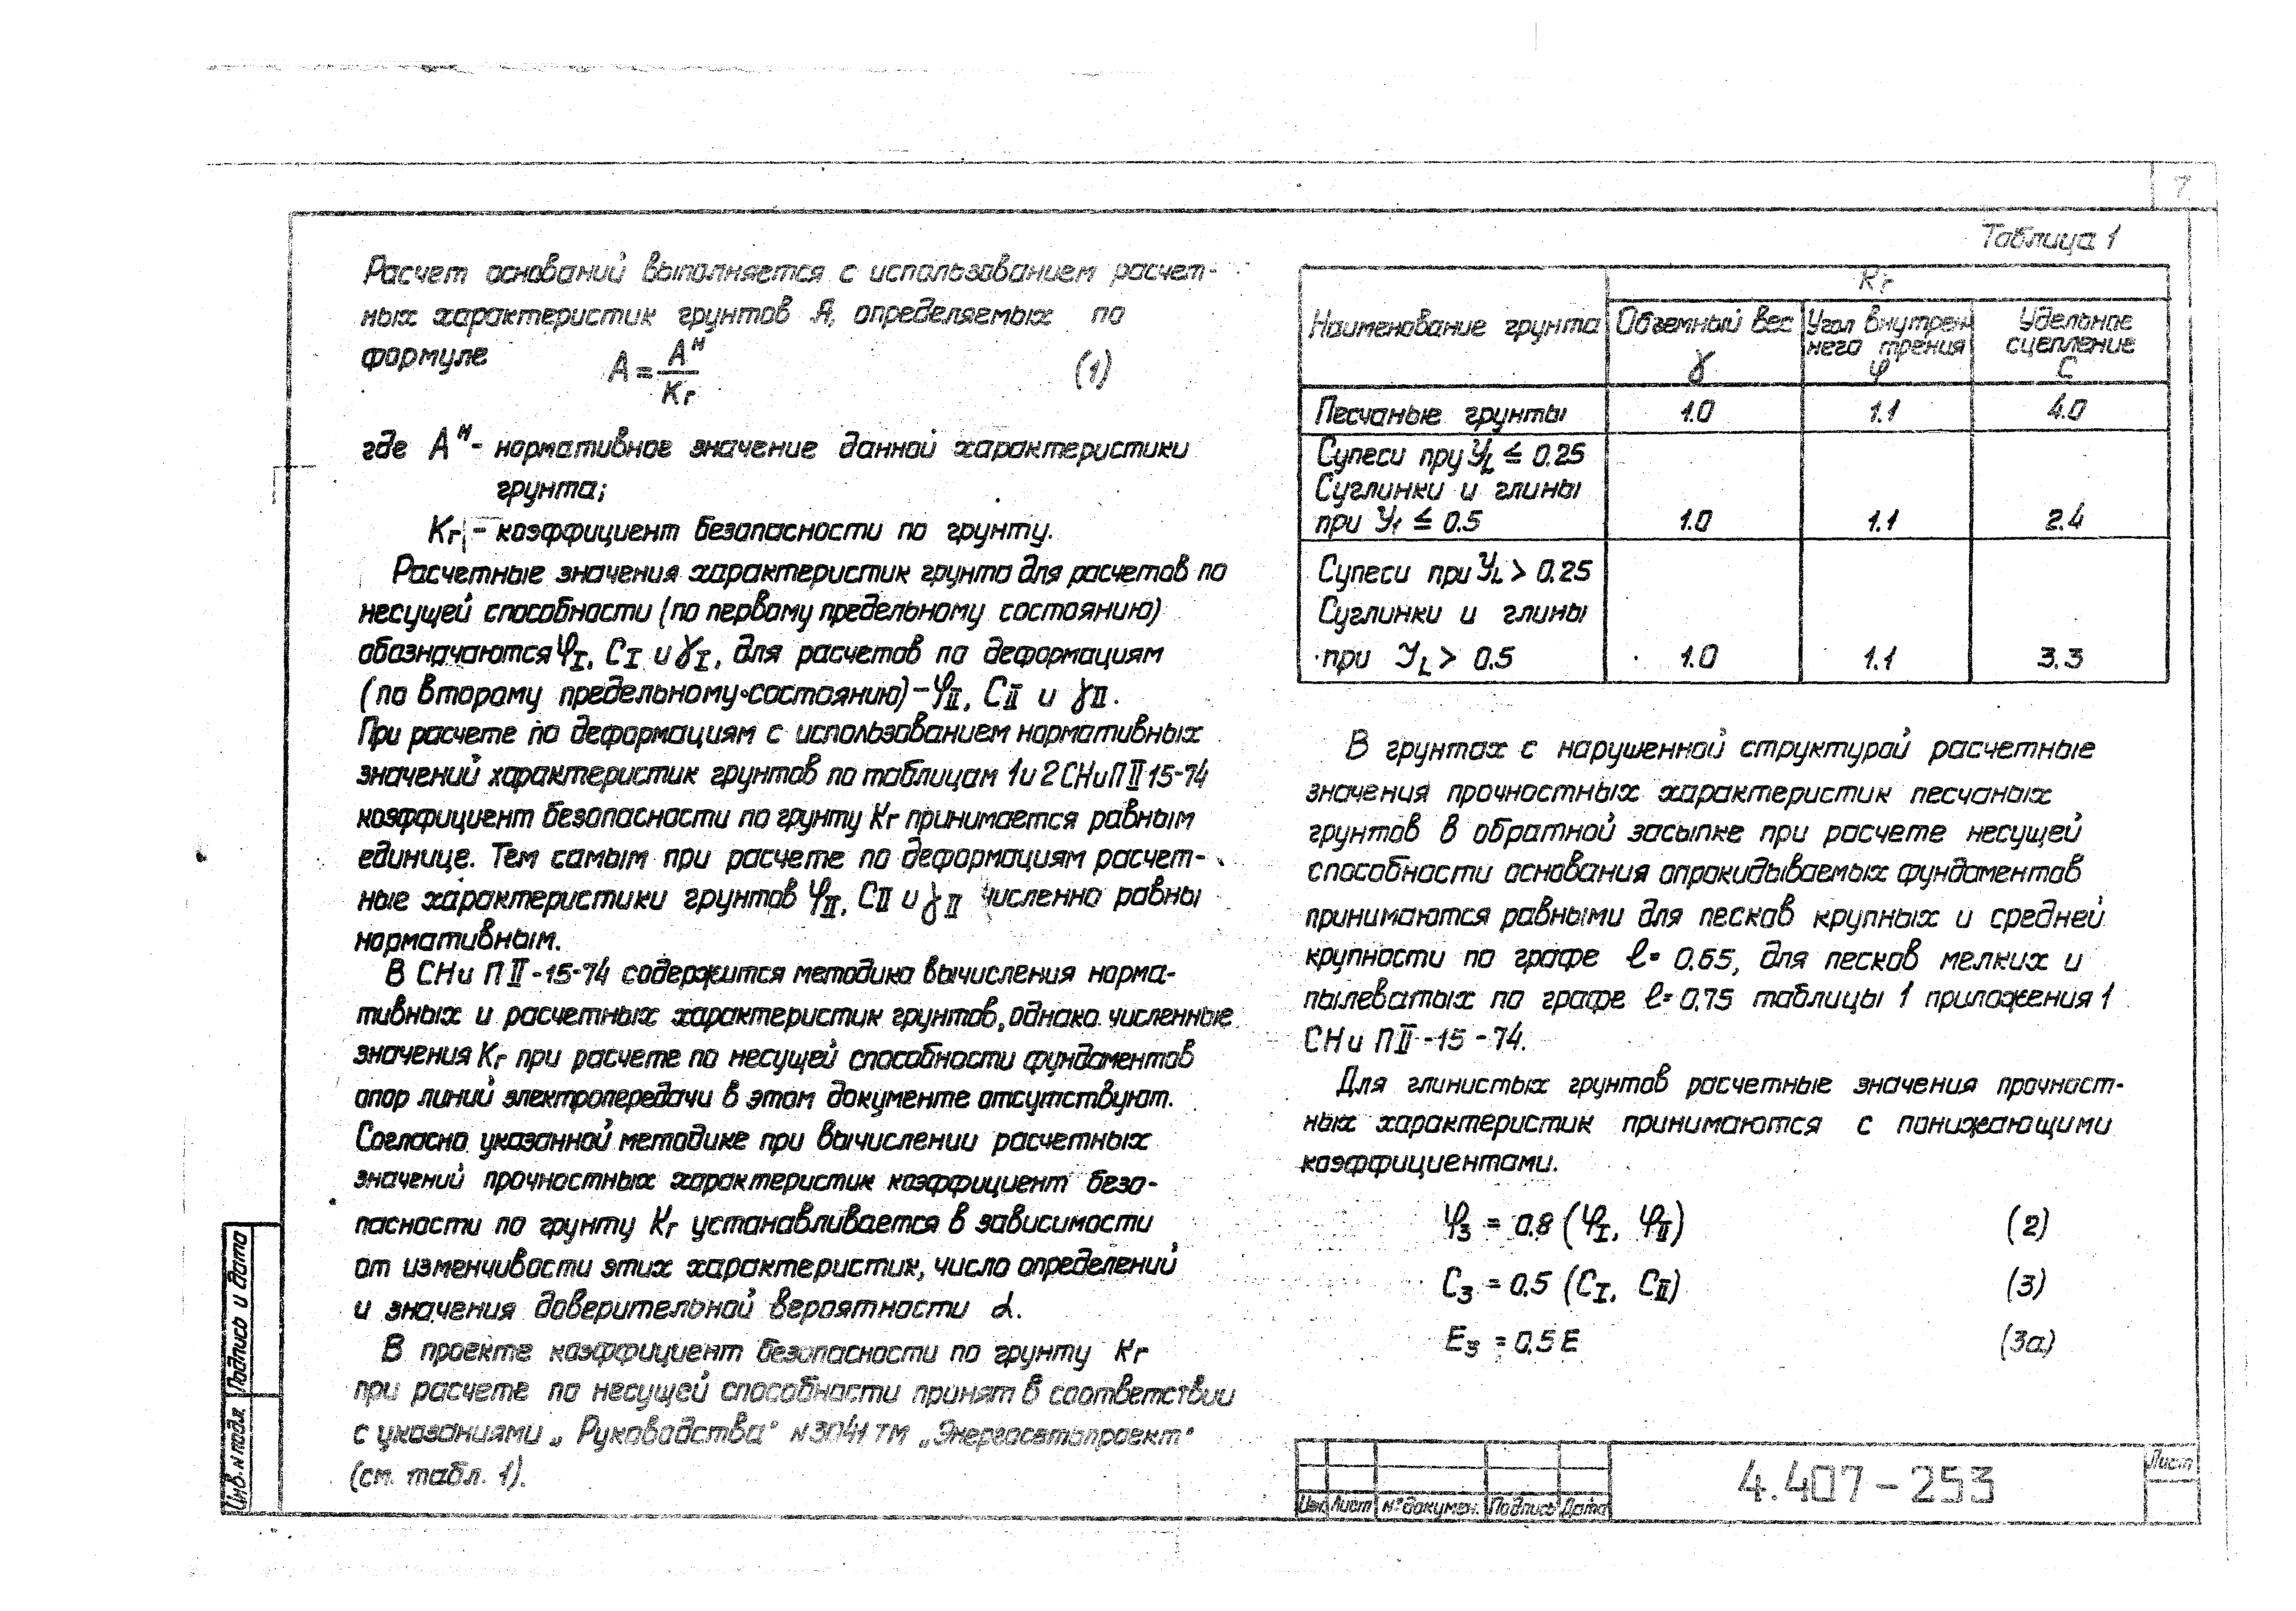 7
Расчет оснований выполняется с использованием расчет-
ных характеристик грунтов А, определяемых по
формуле
A = Aᴴ / Kг (1)
где Aᴴ - нормативное значение данной характеристики
грунта;
Kг - коэффициент безопасности по грунту.
Расчетные значения характеристик грунта для расчетов по
несущей способности (по первому предельному состоянию)
обозначаются φI, CI и γI, для расчетов по деформациям
(по второму предельному состоянию) - φII, CII и γII.
При расчете по деформациям с использованием нормативных
значений характеристик грунтов по таблицам 1 и 2 СНиП II 15-74
коэффициент безопасности по грунту Kг принимается равным
единице. Тем самым при расчете по деформациям расчет-
ные характеристики грунтов φII, CII и γII численно равны
нормативным.
В СНиП II-15-74 содержится методика вычисления норма-
тивных и расчетных характеристик грунтов, однако численные
значения Kг при расчете по несущей способности фундаментов
опор линий электропередачи в этом документе отсутствуют.
Согласно указанной методике при вычислении расчетных
значений прочностных характеристик коэффициент безо-
пасности по грунту Kг устанавливается в зависимости
от изменчивости этих характеристик, число определений
и значения доверительной вероятности α.
В проекте коэффициент безопасности по грунту Kг
при расчете по несущей способности принят в соответствии
с указаниями „Руководства" N3041 ТМ „Энергосетьпроект"
(см. табл. 1).
Таблица 1
Наименование грунта
Kг
Объемный вес γ
Угол внутрен
него трения φ
Удельное
сцепление C
Песчаные грунты 1.0 1.1 4.0
Супеси пру YL ≤ 0.25
Суглинки и глины
при Y1 ≤ 0.5 1.0 1.1 2.4
Супеси при YL > 0.25
Суглинки и глины
при YL > 0.5 1.0 1.1 3.3
В грунтах с нарушенной структурой расчетные
значения прочностных характеристик песчаных
грунтов в обратной засыпке при расчете несущей
способности основания опрокидываемых фундаментов
принимаются равными для песков крупных и средней
крупности по графе ℓ= 0.65, для песков мелких и
пылеватых по графе ℓ= 0.75 таблицы 1 приложения 1
СНиП II -15 -74.
Для глинистых грунтов расчетные значения прочност-
ных характеристик принимаются с понижающими
коэффициентами.
φ3 = 0.8 (φI, φII) (2)
C3 = 0.5 (CI, CII) (3)
E3 = 0.5 E (3а)
Инв.N подл. Подпись и дата
Изм. Лист №докумен. Подпись Дата
4.407-253
Лист